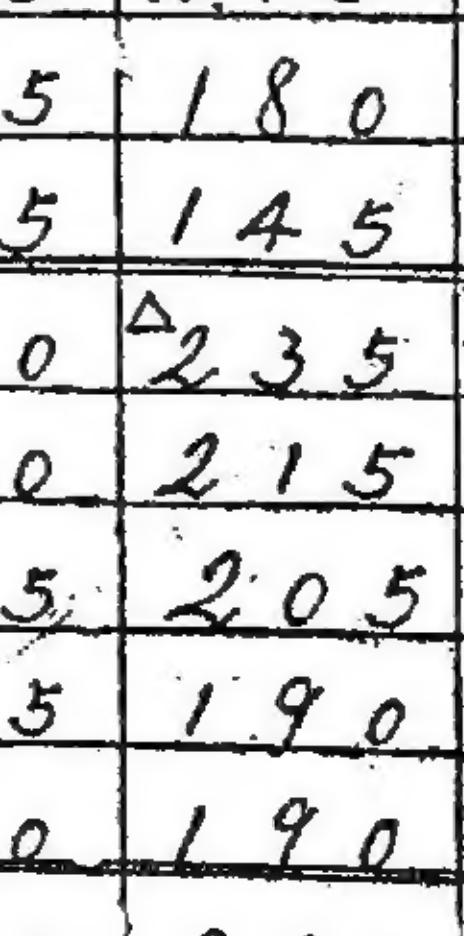 5 180
5 145
0 △235
0 215
5 205
5 190
0 190